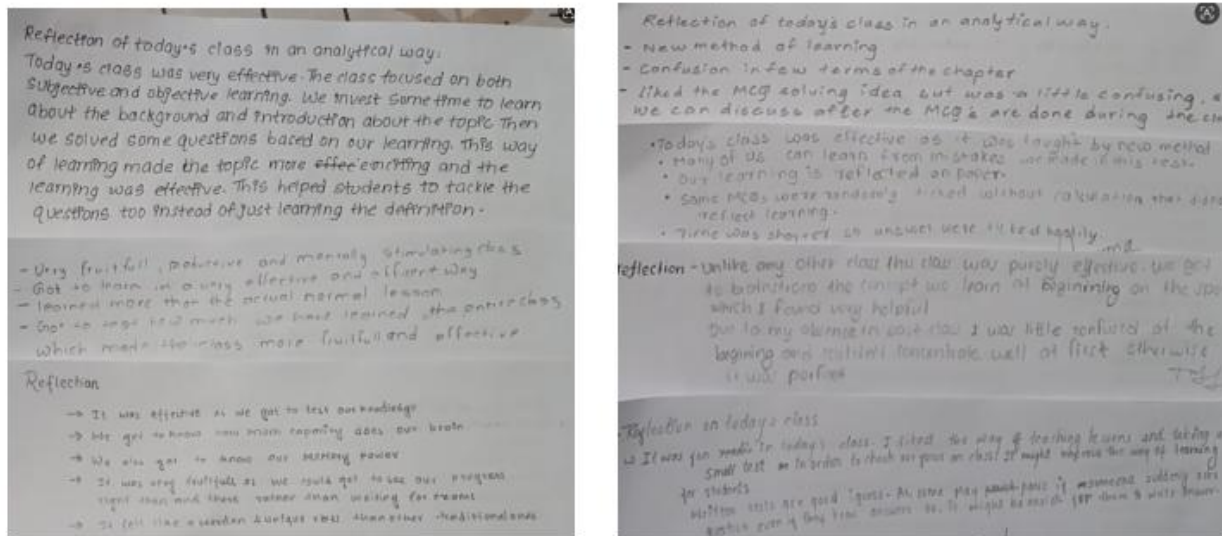 Reflection of today's class in an analytical way.
Today's class was very effective. The class focused on both
subjective and objective learning. We invest some time to learn
about the background and introduction about the topic Then
we solved some questions based on our learning. This way
of learning made the topic more exciting and the
learning was effective. This helped students to tackle the
questions too instead of just learning the definition.
- Very fruitfull, and mentally stimulating class
- Got to learn in a very effective and way
- learned more than the actual normal lesson
- Got to how much we have learned the entire class
which made the class more fruitfull and effective
Reflection
→ It was effective as we got to test our knowledge
→ We got to know how much capacity does our brain
→ We also got to know our memory power
→ It was very fruitfull as we could get to see our progress
right then and there rather than waiting for
→ It felt like a unique class than other traditional ones.
Reflection of today's class in an analytical way.
- New method of learning
- Confusion in few terms of the chapter
- Liked the MCQ solving idea but was a little confusing,
we can discuss after the MCQ's are done during the
• Today's class was effective as it was taught by new method.
• Many of us can learn from mistakes we made in this test.
• Our learning is reflected on paper.
• Some MCQs were randomly ticked without calculation that
reflect learning.
• Time was shorter so answer were ticked hastily.
Reflection - Unlike any other class this class was purely effective. We got
to the concept we learn at beginning on the
which I found very helpful
Due to my absence in last class I was little confused at the
beginning and couldn't concentrate well at first otherwise
it was perfect
Reflection on today's class
It was in today's class. I liked the way of teaching lessons and taking
small test in order to check our on class. It might the way of learning
for students
Written tests are good I guess. As some may if someone suddenly
question even if they answers